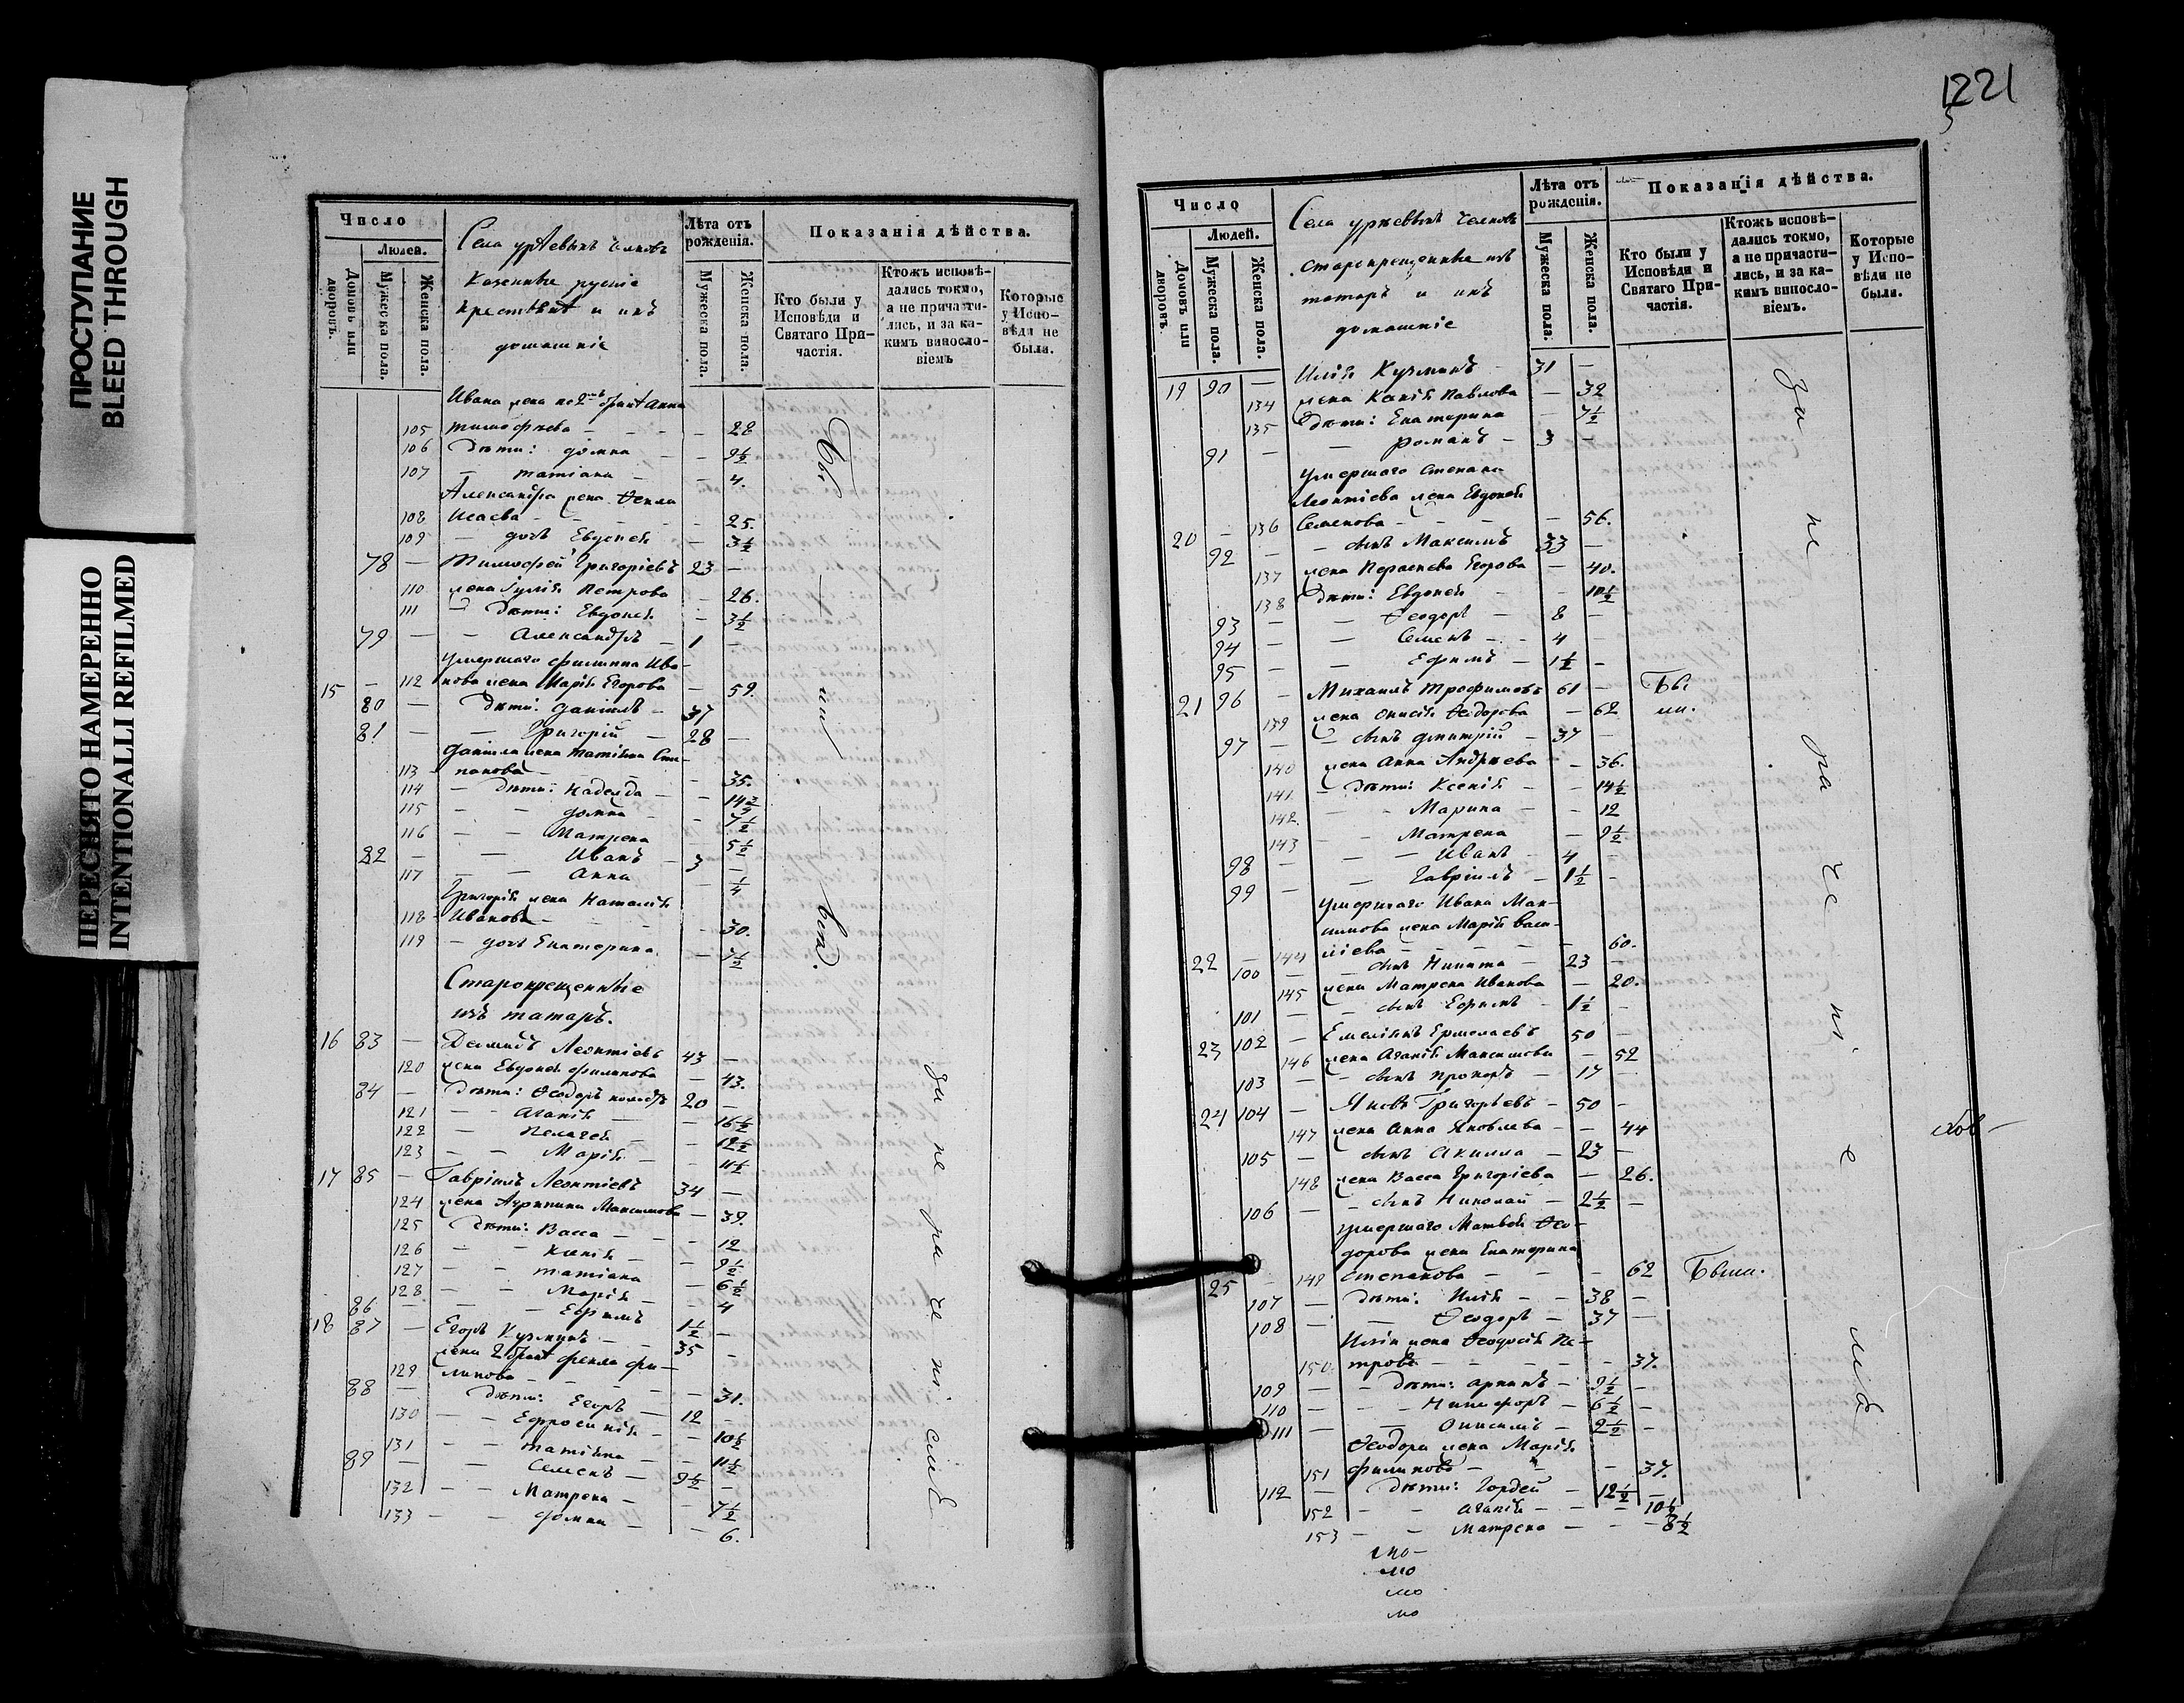 ПРОСТУПАНИЕ
BLEED THROUGH
ПЕРЕСНЯТО НАМЕРЕННО
INTENTIONALLI REFILMED
Число
Людей.
Домовъ или дворовъ.
Мужеска пола.
Женска пола.
Села Урѣевыхъ Челновъ
Казенные русскіе
крестьяне и ихъ
домашніе
Лѣта отъ рожденія.
Мужеска пола.
Женска пола.
Показанія дѣйства.
Кто были у Исповѣди и Святаго Причастія.
Ктожъ исповѣдались токмо, а не причастились, и за какимъ винословіемъ
Которые у Исповѣди не были.
Ивана жена по 2мъ бракѣ Анна
105 Тимофеева - 28
106 Дѣти: Домна - 9½
107 - Татіана - 4.
Александра жена Ѳекла
108 Исаева - 25.
109 - дочь Евдокія - 3½
78 - Тимофей Григорьевъ 23 -
110 жена Іулія Петрова - 26.
111 - Дѣти: Евдокія - 3½
79 - - Александръ - 1 -
умершаго Филиппа Ива-
15 - 112 нова жена Марія Егорова - 59.
80 - Дѣти: Даніилъ - 37
81 - - Григорій - 28 -
Даніила жена Татіяна Сте-
113 - панова - 35.
114 - дѣти: Надежда - 14½
115 - - Домна - 7½
116 - - Матрена - 5½
82 - - Иванъ - 3 -
117 - - Анна - ¼
Григорія жена Наталія
118 - Иванова - 30.
119 - дочь Екатерина - 7½
Старокрещенные
изъ татаръ.
16 83 - Демидъ Леонтіевъ 43 -
120 жена Евдокія Филипова - 43.
84 - Дѣти: Ѳеодоръ холостъ 20 -
121 - - Агафія - 16½
122 - Пелагея - 12½
123 - - Марія - 11½
17 85 - Гавріилъ Леонтіевъ 34 -
124 жена Агрипина Максимова - 39.
125 Дѣти: Васса - 12
126 - - Ксенія - 9½
127 - - Татіана - 6½
128 - - Марія - 4
86 - - - Ефимъ 1½ -
18 87 - Егоръ Кузминъ - 35 -
жена 2 брака Фекла Фи-
129 липова - 31.
88 - Дѣти: Егоръ - 12 -
130 - - Ефросинія - 10½
131 - - Татіяна - 11½
89 - - Семенъ - 9½ -
132 - - Матрена - 7½
133 - - Домна - 6.
Бы
ли
всѣ.
За не ра че ні емъ
1221
Число
Людей.
Домовъ или дворовъ.
Мужеска пола.
Женска пола.
Села Урѣевыхъ Челновъ
старокрещенные изъ
татаръ и ихъ
домашніе
Лѣта отъ рожденія.
Мужеска пола.
Женска пола.
Показанія дѣйства.
Кто были у Исповѣди и Святаго Причастія.
Ктожъ исповѣдались токмо, а не причастились, и за какимъ винословіемъ.
Которые у Исповѣди не были.
19 90 - Илія Кузминъ - 31 -
134 жена Ксенія Павлова - 32
135 Дѣти: Екатерина - 7½
91 - - Романъ - 3 -
умершаго Степана
Леонтіева жена Евдокія
20 - 136 Семенова - 56.
92 - - сынъ Максимъ 33 -
137 жена Параскева Егорова - 40.
138 Дѣти: Евдокія - 10½
93 - - Ѳеодоръ - 8 -
94 - - Семенъ - 4 -
95 - - Ефимъ - 1½ -
21 96 - Михаилъ Трофимовъ 61 - Бы
139 жена Анисія Ѳедорова - 62 ли.
97 - - сынъ Дмитрій - 37 -
140 жена Анна Андреева - 36.
141 - Дѣти: Ксенія - 14½
142 - - Марина - 12
143 - - Матрена - 9½
98 - - Иванъ - 4 -
99 - - Гавріилъ - 1½ -
умершаго Ивана Мак-
симова жена Марія Васи-
22 - 144 ліева - 60.
100 - - сынъ Никита - 23 -
145 жена Матрена Иванова - 20.
101 - - сынъ Ефимъ - 1½ -
23 102 - Емеліянъ Ермолаевъ 50 -
146 жена Агафія Максимова - 52
103 - - сынъ Прохоръ - 17 -
24 104 - Яковъ Григорьевъ - 50 -
147 жена Анна Яковлева - 44
105 - сынъ Акилла - 23 -
148 жена Васса Григоріева - 26.
106 - - сынъ Николай - 2½ -
умершаго Матвея Ѳео-
дорова жена Екатерина
25 - 149 Степанова - 62 Были.
107 - Дѣти: Илія - 38 -
108 - - Ѳеодоръ - 37 -
Иліи жена Ѳеодосія Пе-
150. трова - 37.
109 - - Дѣти: Архипъ - 9½ -
110 - - Никифоръ - 6½ -
111 - - Онисимъ - 2½ -
Ѳеодора жена Марія
151 Филипова - 37.
112 - Дѣти: Гордей - 12½ -
152 - - Агафія - 10½
153 - - Матрена - 8½
За не ра че ні е мъ
мо-
мо
мо
мо